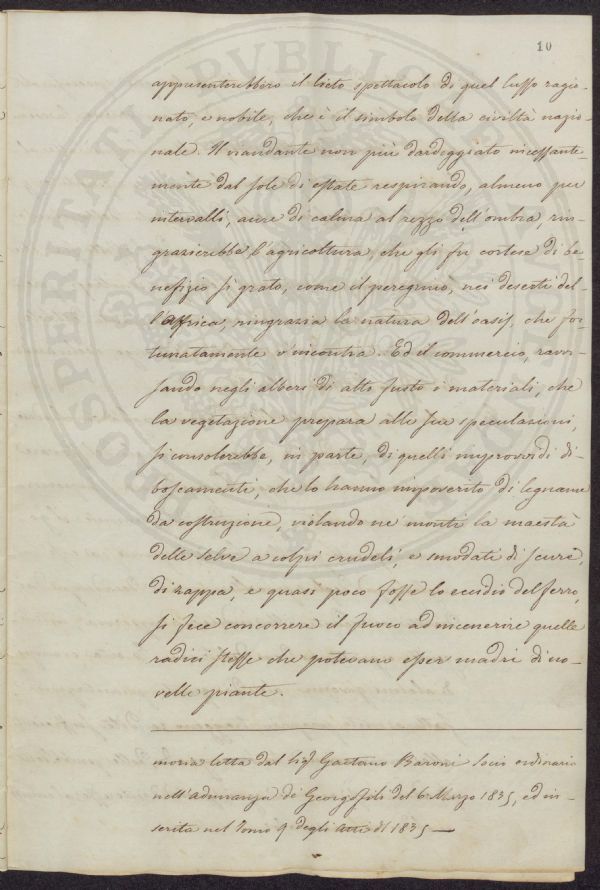 10
appresenterebbero il lieto spettacolo di quel lusso ragio-
nato, e nobile, che è il simbolo della civiltà nazio-
nale. Il viandante non più dardeggiato incessante-
mente dal sole di estate respirando, almeno per
intervalli, aure di calma al rezzo dell'ombra, rin-
grazierebbe l'agricoltura, che gli fu cortese di be-
nefizio sì grato, come il peregrino, nei deserti del-
l'Affrica, ringrazia la natura dell'oasis, che for-
tunatamente v'incontra. Ed il commercio, ravvi-
sando negli alberi di alto fusto i materiali, che
la vegetazione prepara alle sue speculazioni,
si consolerebbe, in parte, di quelli improvvidi di-
boscamenti, che lo hanno impoverito di legname
da costruzione, violando ne' monti la maestà
delle selve a colpi crudeli, e smodati di scure,
di zappa, e quasi poco fosse lo eccidio del ferro,
si fece concorrere il fuoco ad incenerire quelle
radici stesse che potevano esser madri di no-
velle piante.
moria letta dal Sig.r Gaetano Baroni Socio ordinario
nell'adunanza de' Georgofili del 6 Marzo 1835, ed in-
serita nel Tomo 9 degli Atti di 1835 —
PROSPERITATI PUBLICAE